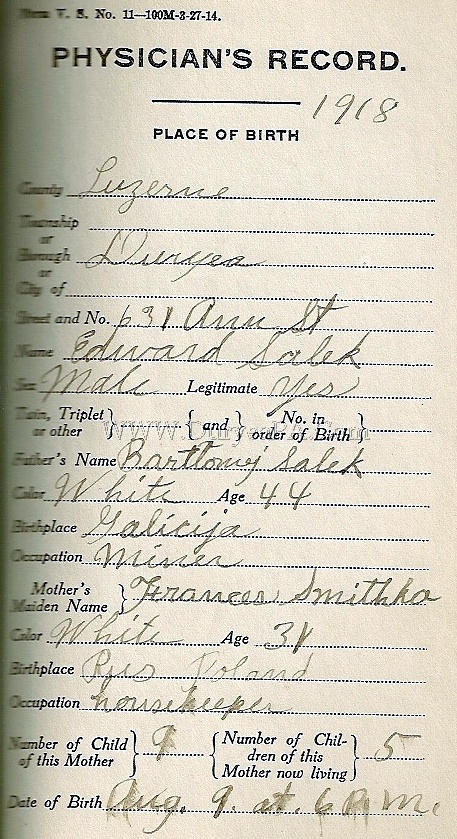 Form V. S. No. 11—100M-3-27-14.
PHYSICIAN'S RECORD.
1918
PLACE OF BIRTH
County Luzerne
Township
or
Borough Duryea
or
City of
Street and No. 631 Ann St
Name Edward Salek
Sex Male Legitimate Yes
Twin, Triplet or other } { and } No. in order of Birth }
Father's Name Bartlomij Salek
Color White Age 44
Birthplace Galicija
Occupation Miner
Mother's Maiden Name } Frances Smithka
Color White Age 31
Birthplace Rus Poland
Occupation housekeeper
Number of Child of this Mother } 9 { Number of Chil-
dren of this
Mother now living } 5
Date of Birth Aug. 9. at. 6 M.